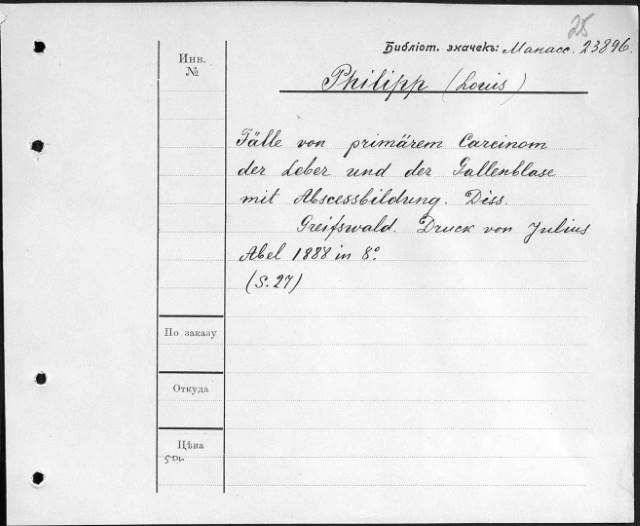 25
Библіот. значекъ: Манасс. 23896.
Инв.
№
Philipp (Louis)
Fälle von primärem Carcinom
der Leber und der Gallenblase
mit Abscessbildung. Diss.
Greifswald. Druck von Julius
Abel 1888 in 8°.
(S. 27)
По заказу
Откуда
Цѣна